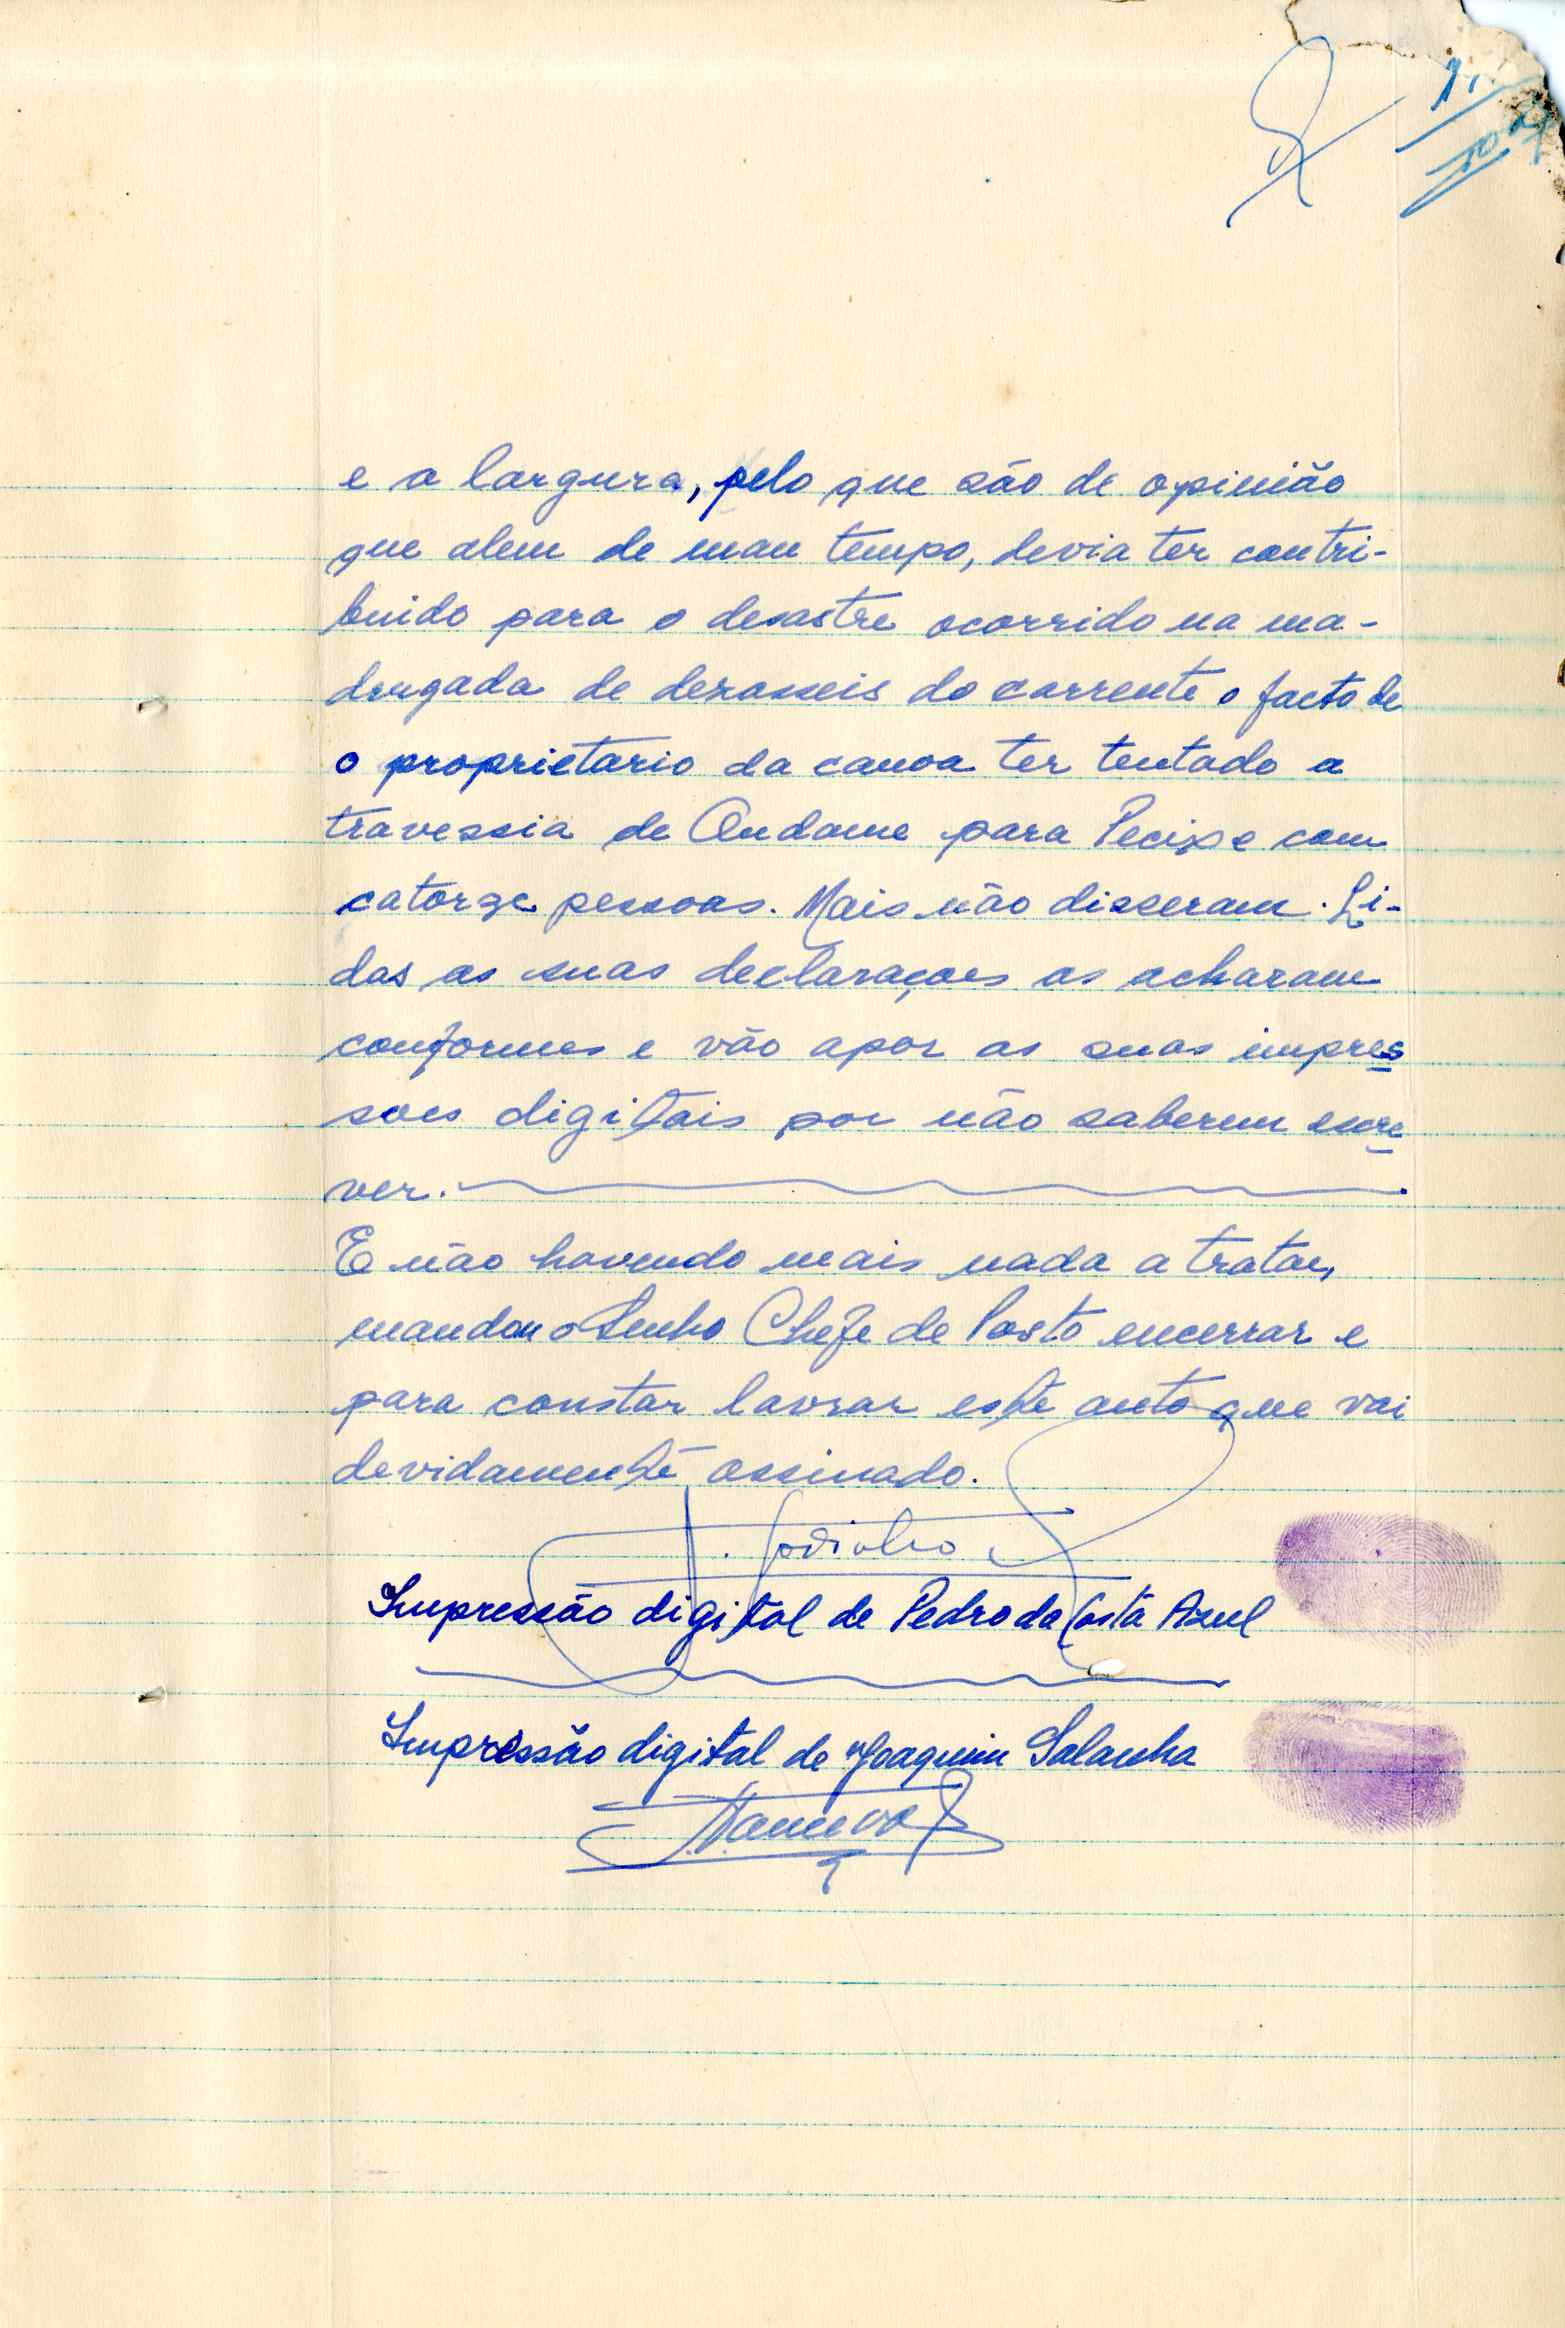 e a largura, pelo que são de opinião
que alem de mau tempo, devia ter contri-
buido para o desastre ocorrido na ma-
drugada de dezasseis do corrente o facto de
o proprietario da canoa ter tentado a
travessia de Ondame para Pecixe com
catorze pessoas. Mais não disseram. Li-
das as suas declarações as acharam
conformes e vão apor as suas impres
sões digitais por não saberem escre
ver.
E não havendo mais nada a tratar,
mandou o Senho Chefe de Posto encerrar e
para constar lavrar este auto que vai
devidamente assinado.
Godinho
Impressão digital de Pedro da Costa Azul
Impressão digital de Joaquim Salanha